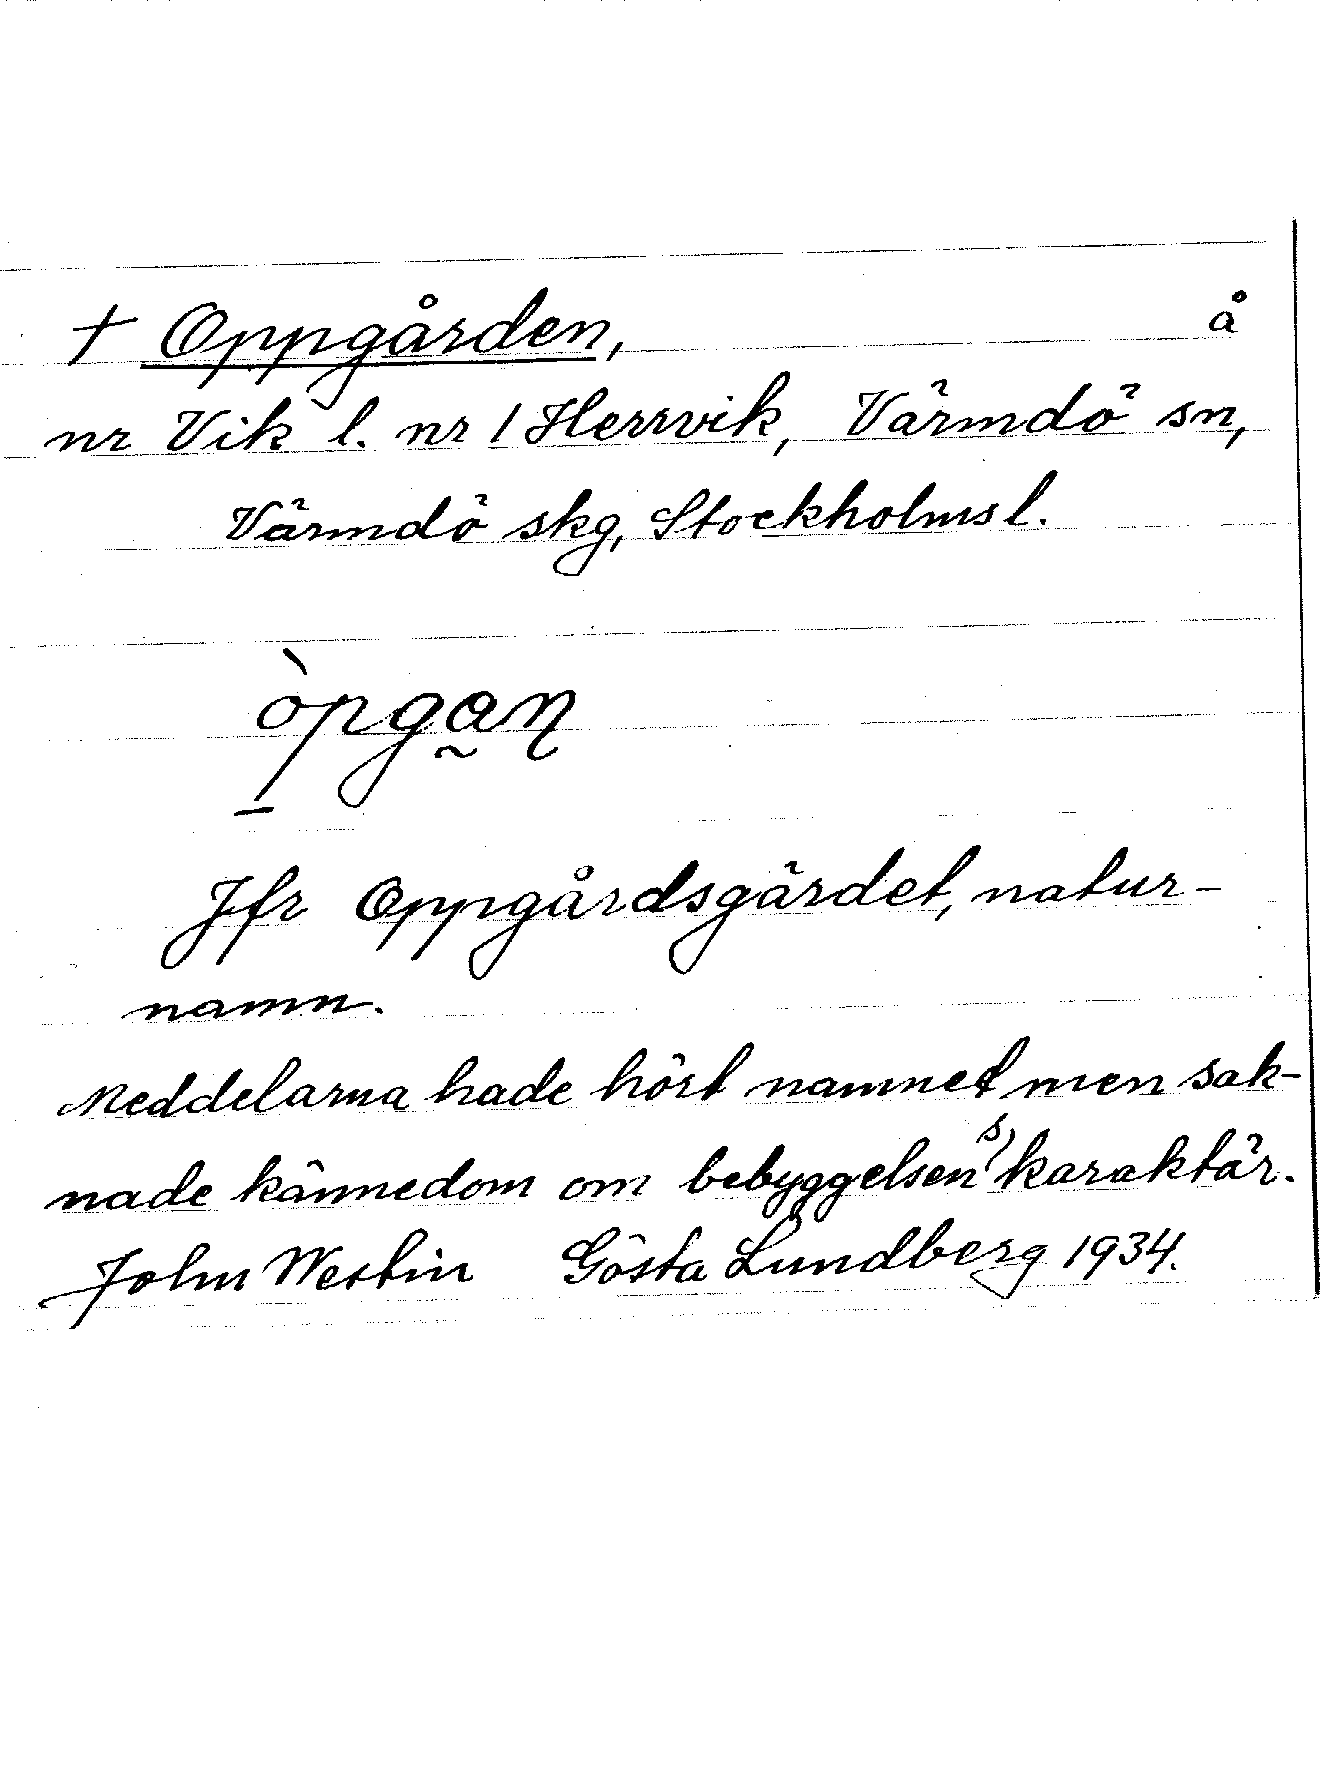 † Oppgården, å
nr Vik l. nr 1 Herrvik, Värmdö sn,
Värmdö skg, Stockholms l.
òpga̰ɳ
Jfr Oppgårdsgärdet, natur-
namn.
Meddelarna hade hört namnet men sak-
nade kännedom om bebyggelsens karaktär.
John Westin Gösta Lundberg 1934.